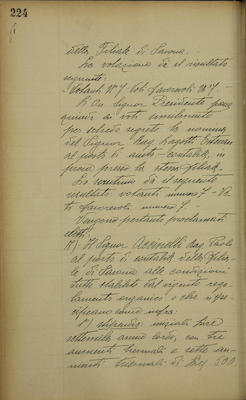 224
detta Filiale di Savona. -
La votazione dà il risultato
seguente:
Votanti N° 7. Voti favorevoli N° 7. -
Il On. Signor Presidente pone
quindi ai voti similmente
per schede segrete la nomina
del Signor Rag.
al posto di aiuto - Contabile in
prova presso la stessa filiale.
Lo scrutinio dà il seguente
risultato: votanti numero 7 - Vo-
ti favorevoli numero 7 -
Vengono pertanto proclamati
eletti:
Il Signor Assinelli Rag. Paolo
al posto di contabile della Filia-
le di Savona alle condizioni
tutte stabilite dal vigente rego-
lamento organico e che si spe-
cificano come infra:
1°) stipendio: iniziali Lire
annue lorde, con tre
aumenti triennali e sette au-
menti biennali di Lire 500